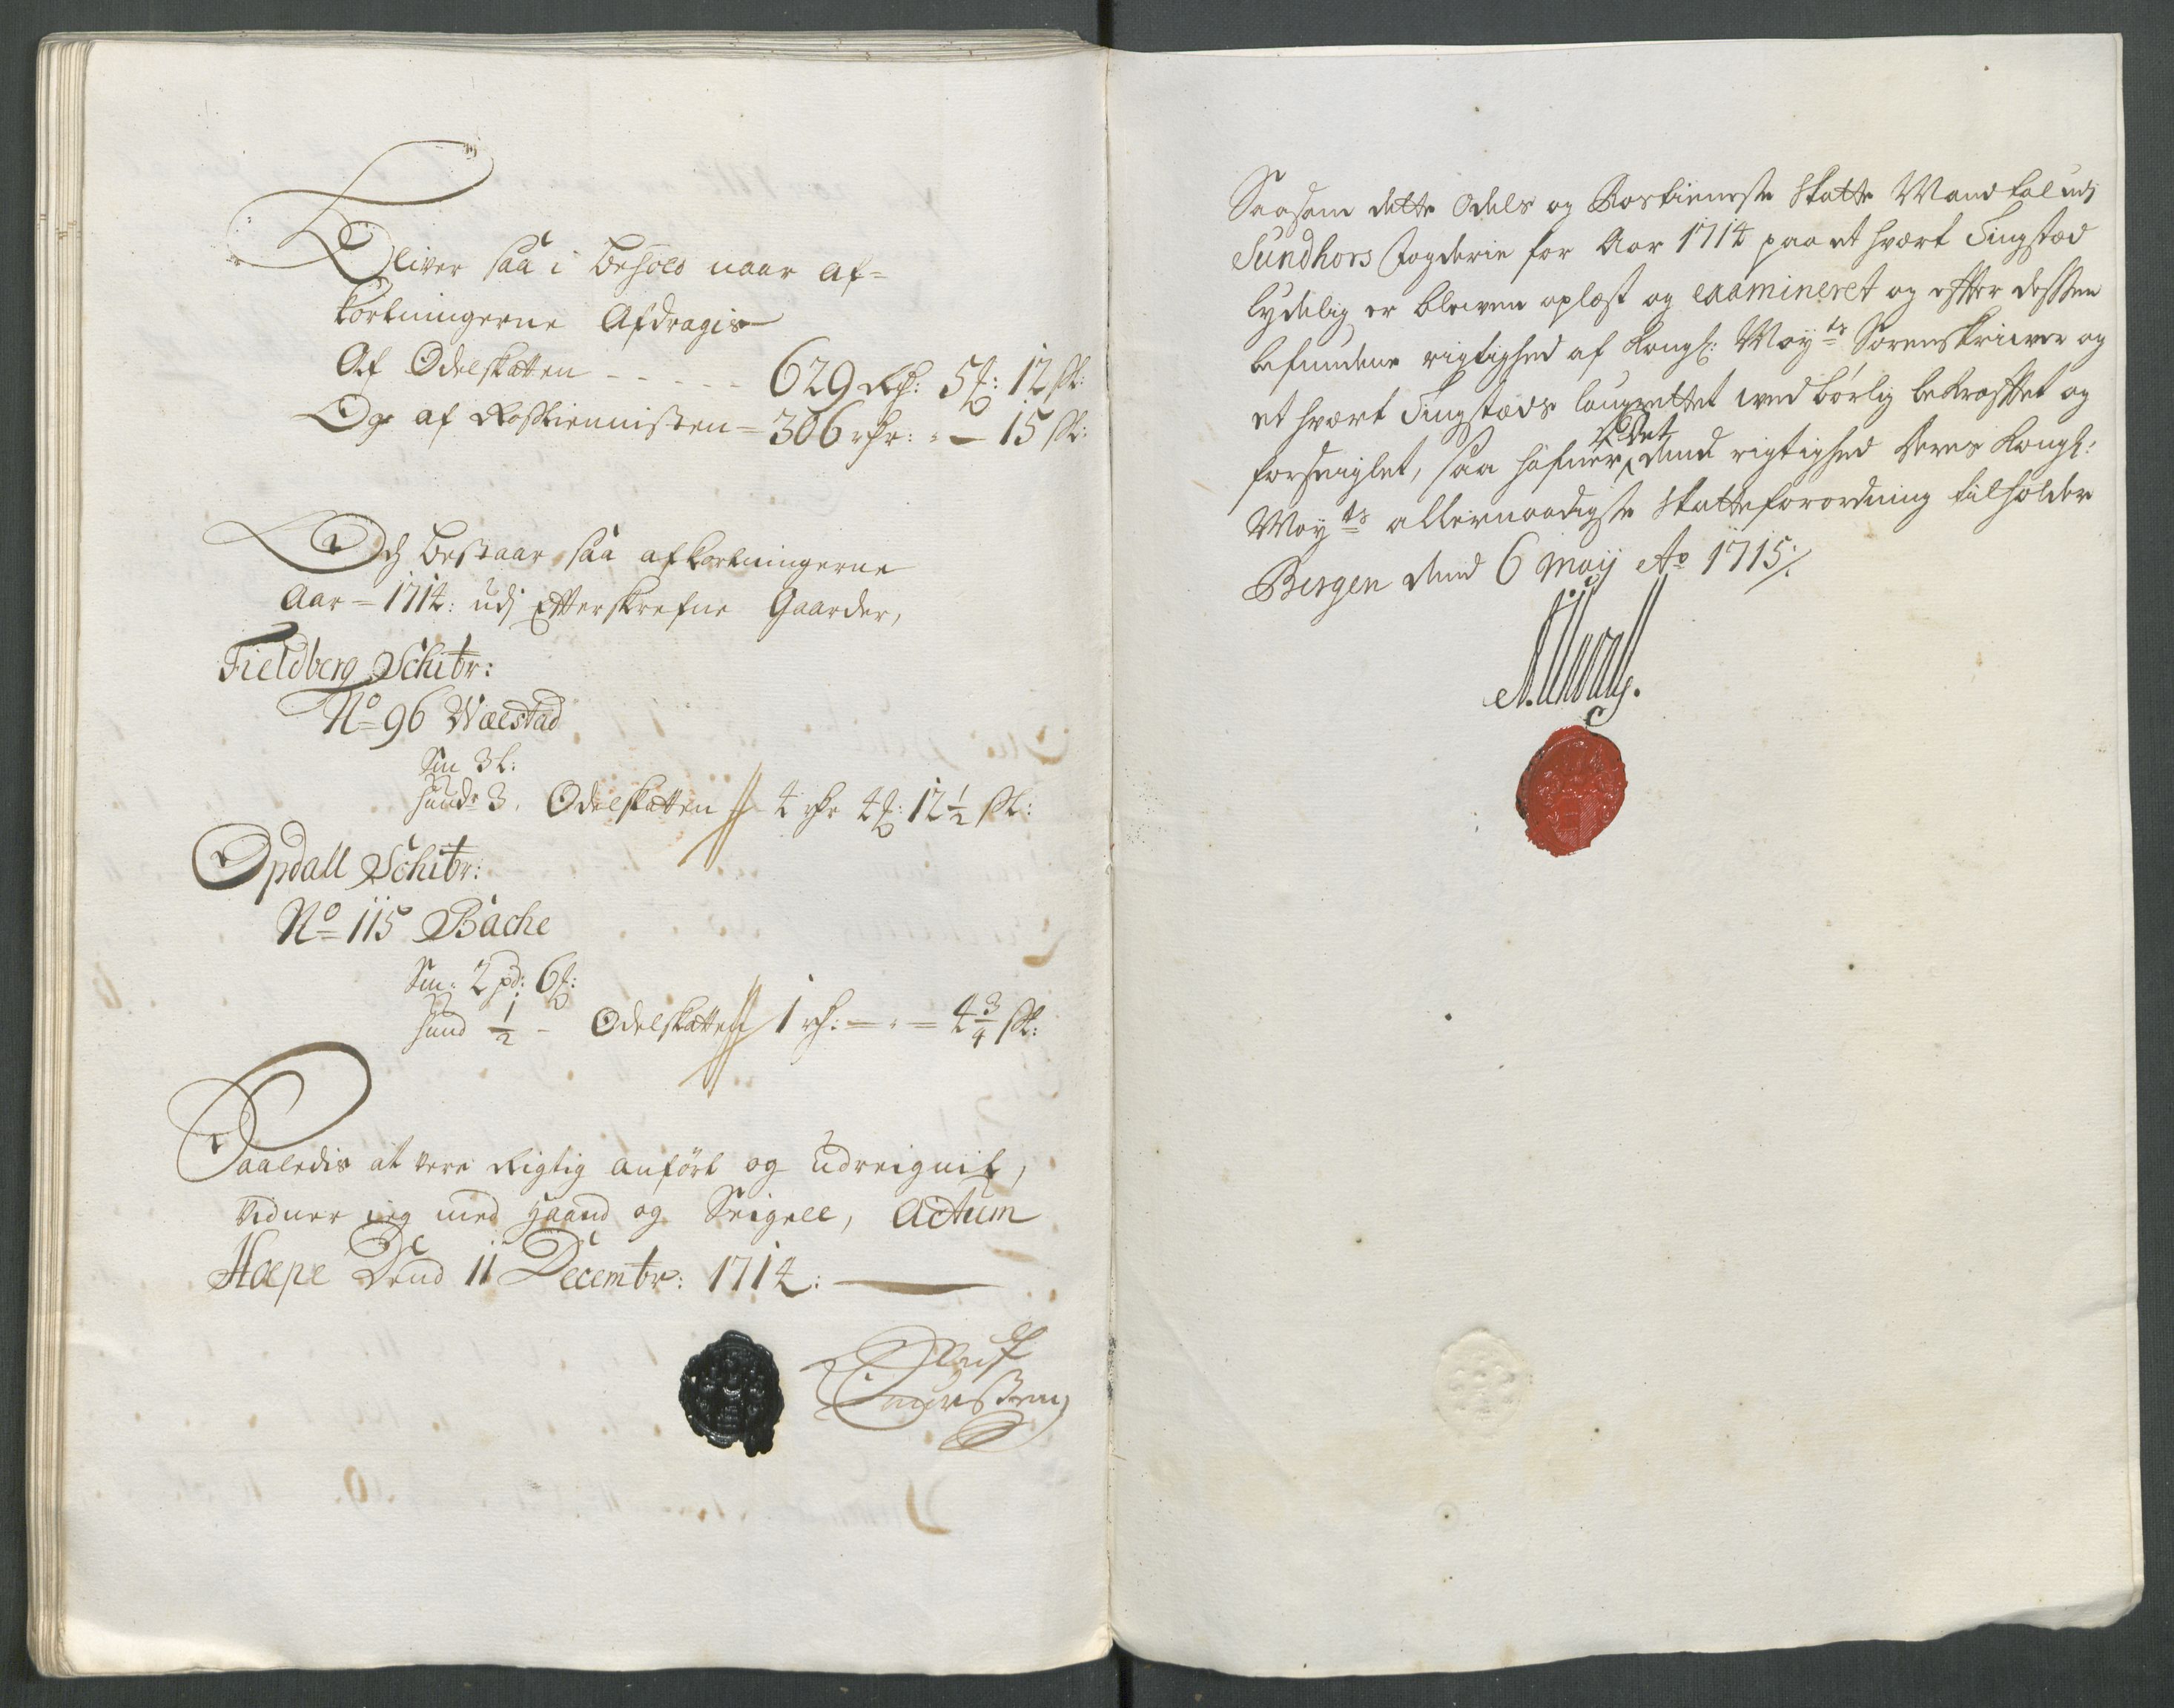 Bliver saa i behold naar af-
kortningerne Afdragis
Af Odelskatten - - - - - 629 Rd: 5 ʒ: 12 sk:
Og af Rostiennisten = 306 rdr: - 15 sk:
Och bestaar saa afkortningerne
Aar = 1714: udj Efterskrefne Gaarder,
Fieldberg Schibr:
No 96 Wælstad
Sm 3 l:
Huud 3. Odelskatten 4 rdr 4 ʒ: 12 1/2 sk:
Opdall Schibr:
No 115 Bache
Sm: 2 pd: 6 ʒ:
Huud 1/2 - Odelskatten 1 rd: - 4 3/4 sk:
Saaledis at vere Rigtig anført og udreignit,
vidner ieg med Haand og Seigell, Actum
Hæpe Dend 11 Decembr: 1714:
Saasom dette Odels og Rostieneste Skatte Mandtal udj
Sundhors fogderie for Aar 1714 paa et hvert Tingsted
lydelig er bleven oplæst og examineret og effter dessen
befundene rigtighed af Kongl: May.ts Sorenskriver og
et hvert Tingsteds laugrettet ved børlig bekræfftet og
forseiglet, saa hafver det dend rigtighed deres Kongl:
May.ts allernaadigste Skatteforordning tilholder
Bergen dend 6 Maij Ao 1715/.